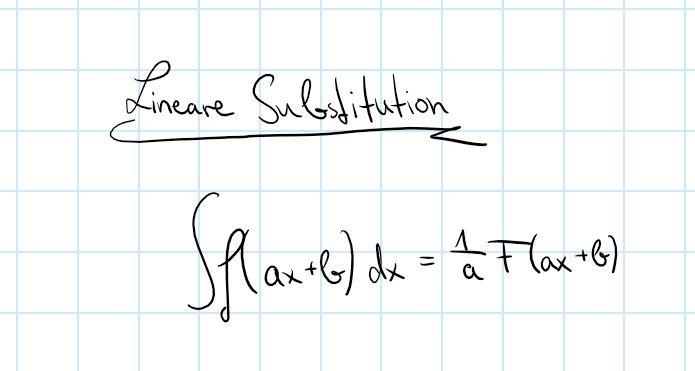 Lineare Substitution
∫f(ax+b) dx = 1/a F(ax+b)